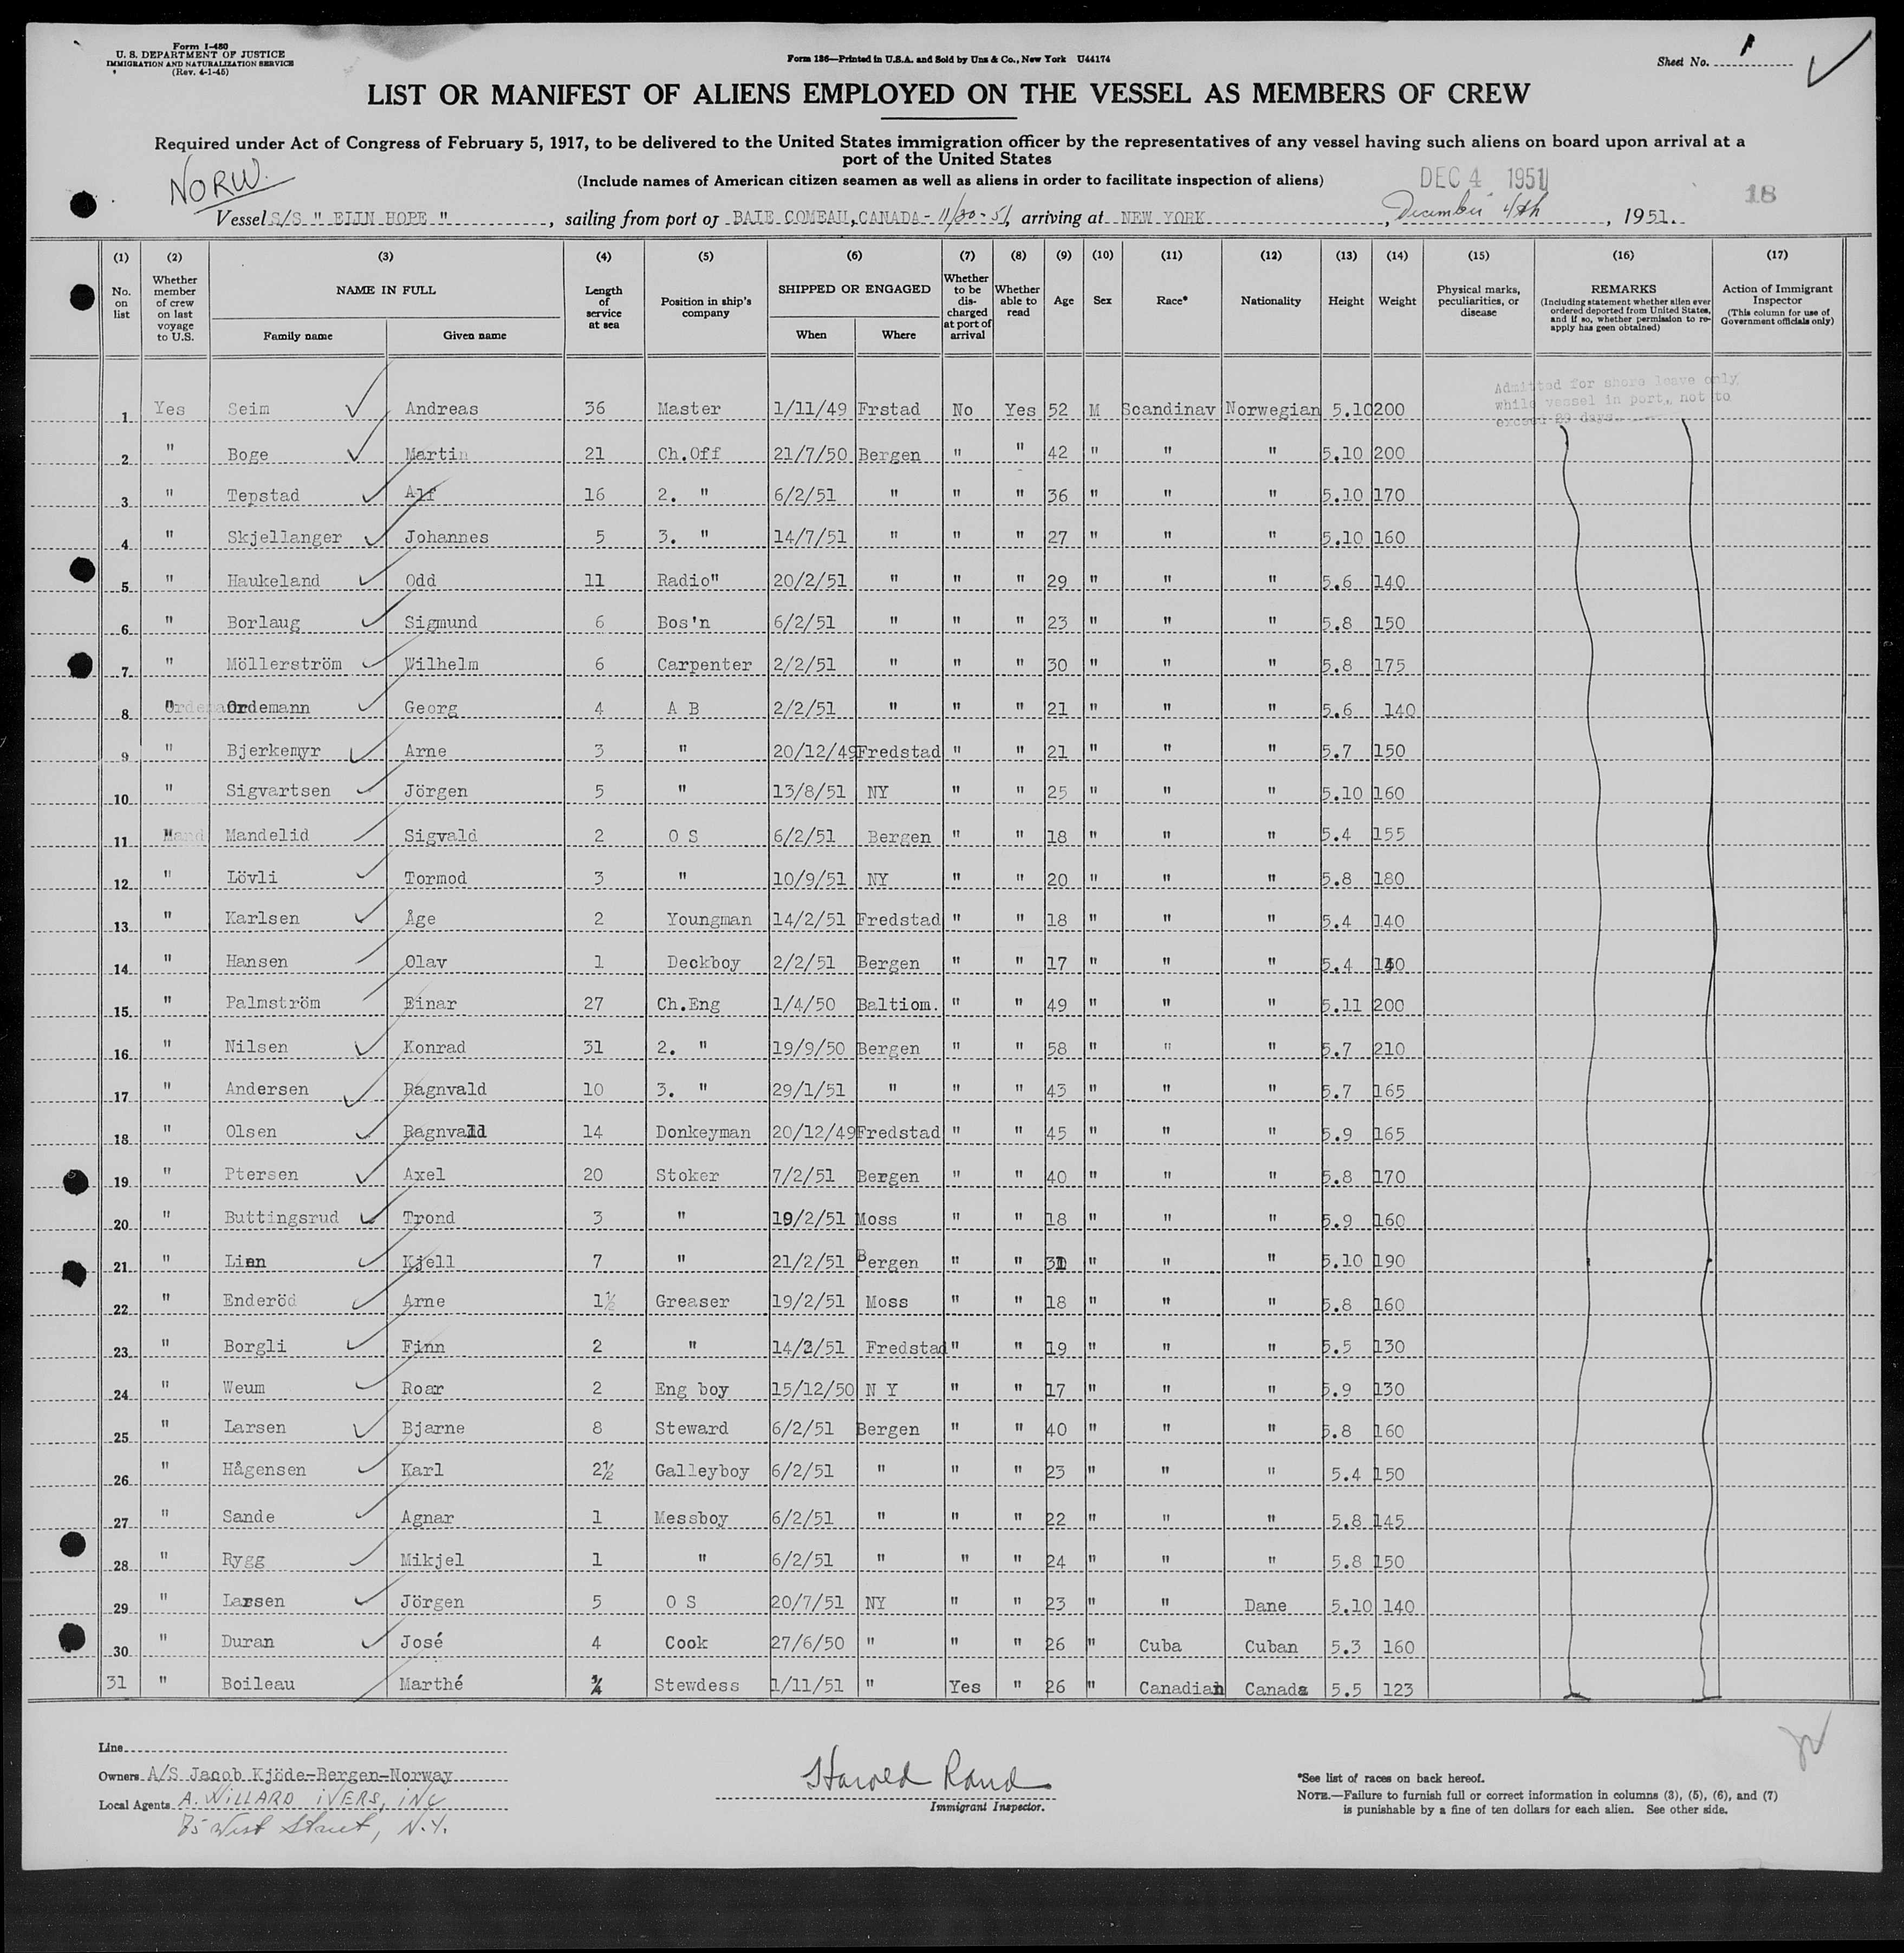 Form I-480
U. S. DEPARTMENT OF JUSTICE
IMMIGRATION AND NATURALIZATION SERVICE
(Rev. 4-1-45)
Form 126—Printed in U.S.A. and Sold by Unz & Co., New York U44174
Sheet No. 1
LIST OR MANIFEST OF ALIENS EMPLOYED ON THE VESSEL AS MEMBERS OF CREW
Required under Act of Congress of February 5, 1917, to be delivered to the United States immigration officer by the representatives of any vessel having such aliens on board upon arrival at a
port of the United States
(Include names of American citizen seamen as well as aliens in order to facilitate inspection of aliens)
NORW.
DEC 4 1951
18
Vessel S/S " ELIN HOPE ", sailing from port of BAIE COMEAU, CANADA - 11/30-51, arriving at NEW YORK, December 4th, 1951.
(1) (2) (3) (4) (5) (6) (7) (8) (9) (10) (11) (12) (13) (14) (15) (16) (17)
No. on list
Whether member of crew on last voyage to U.S.
NAME IN FULL
Family name
Given name
Length of service at sea
Position in ship's company
SHIPPED OR ENGAGED
When
Where
Whether to be discharged at port of arrival
Whether able to read
Age
Sex
Race*
Nationality
Height
Weight
Physical marks, peculiarities, or disease
REMARKS
(Including statement whether alien ever ordered deported from United States, and if so, whether permission to re-apply has geen obtained)
Action of Immigrant Inspector
(This column for use of Government officials only)
Admitted for shore leave only
while vessel in port, not to
exceed 29 days.
1 Yes Seim Andreas 36 Master 1/11/49 Frstad No Yes 52 M Scandinav Norwegian 5.10 200
2 " Boge Martin 21 Ch.Off 21/7/50 Bergen " " 42 " " " 5.10 200
3 " Tepstad Alf 16 2. " 6/2/51 " " " 36 " " " 5.10 170
4 " Skjellanger Johannes 5 3. " 14/7/51 " " " 27 " " " 5.10 160
5 " Haukeland Odd 11 Radio" 20/2/51 " " " 29 " " " 5.6 140
6 " Borlaug Sigmund 6 Bos'n 6/2/51 " " " 23 " " " 5.8 150
7 " Möllerström Wilhelm 6 Carpenter 2/2/51 " " " 30 " " " 5.8 175
8 " Ordemann Georg 4 A B 2/2/51 " " " 21 " " " 5.6 140
9 " Bjerkemyr Arne 3 " 20/12/49 Fredstad " " 21 " " " 5.7 150
10 " Sigvartsen Jörgen 5 " 13/8/51 NY " " 25 " " " 5.10 160
11 " Mandelid Sigvald 2 O S 6/2/51 Bergen " " 18 " " " 5.4 155
12 " Lövli Tormod 3 " 10/9/51 NY " " 20 " " " 5.8 180
13 " Karlsen Åge 2 Youngman 14/2/51 Fredstad " " 18 " " " 5.4 140
14 " Hansen Olav 1 Deckboy 2/2/51 Bergen " " 17 " " " 5.4 140
15 " Palmström Einar 27 Ch.Eng 1/4/50 Baltiom. " " 49 " " " 5.11 200
16 " Nilsen Konrad 31 2. " 19/9/50 Bergen " " 58 " " " 5.7 210
17 " Andersen Ragnvald 10 3. " 29/1/51 " " " 43 " " " 5.7 165
18 " Olsen Ragnvald 14 Donkeyman 20/12/49 Fredstad " " 45 " " " 5.9 165
19 " Ptersen Axel 20 Stoker 7/2/51 Bergen " " 40 " " " 5.8 170
20 " Buttingsrud Trond 3 " 19/2/51 Moss " " 18 " " " 5.9 160
21 " Lien Kjell 7 " 21/2/51 Bergen " " " " " 5.10 190
22 " Enderöd Arne 1½ Greaser 19/2/51 Moss " " 18 " " " 5.8 160
23 " Borgli Finn 2 " 14/2/51 Fredstad " " 19 " " " 5.5 130
24 " Weum Roar 2 Eng boy 15/12/50 N Y " " 17 " " " 5.9 130
25 " Larsen Bjarne 8 Steward 6/2/51 Bergen " " 40 " " " 5.8 160
26 " Hågensen Karl 2½ Galleyboy 6/2/51 " " " 23 " " " 5.4 150
27 " Sande Agnar 1 Messboy 6/2/51 " " " 22 " " " 5.8 145
28 " Rygg Mikjel 1 " 6/2/51 " " " 24 " " " 5.8 150
29 " Larsen Jörgen 5 O S 20/7/51 NY " " 23 " " Dane 5.10 140
30 " Duran José 4 Cook 27/6/50 " " " 26 " Cuba Cuban 5.3 160
31 " Boileau Marthé Stewdess 1/11/51 " Yes " 26 " Canadian Canada 5.5 123
Line
Owners A/S Jacob Kjöde-Bergen-Norway
Local Agents A. WILLARD IVERS, INC
75 West Street, N.Y.
Harold Rand
Immigrant Inspector.
*See list of races on back hereof.
NOTE.—Failure to furnish full or correct information in columns (3), (5), (6), and (7)
is punishable by a fine of ten dollars for each alien. See other side.